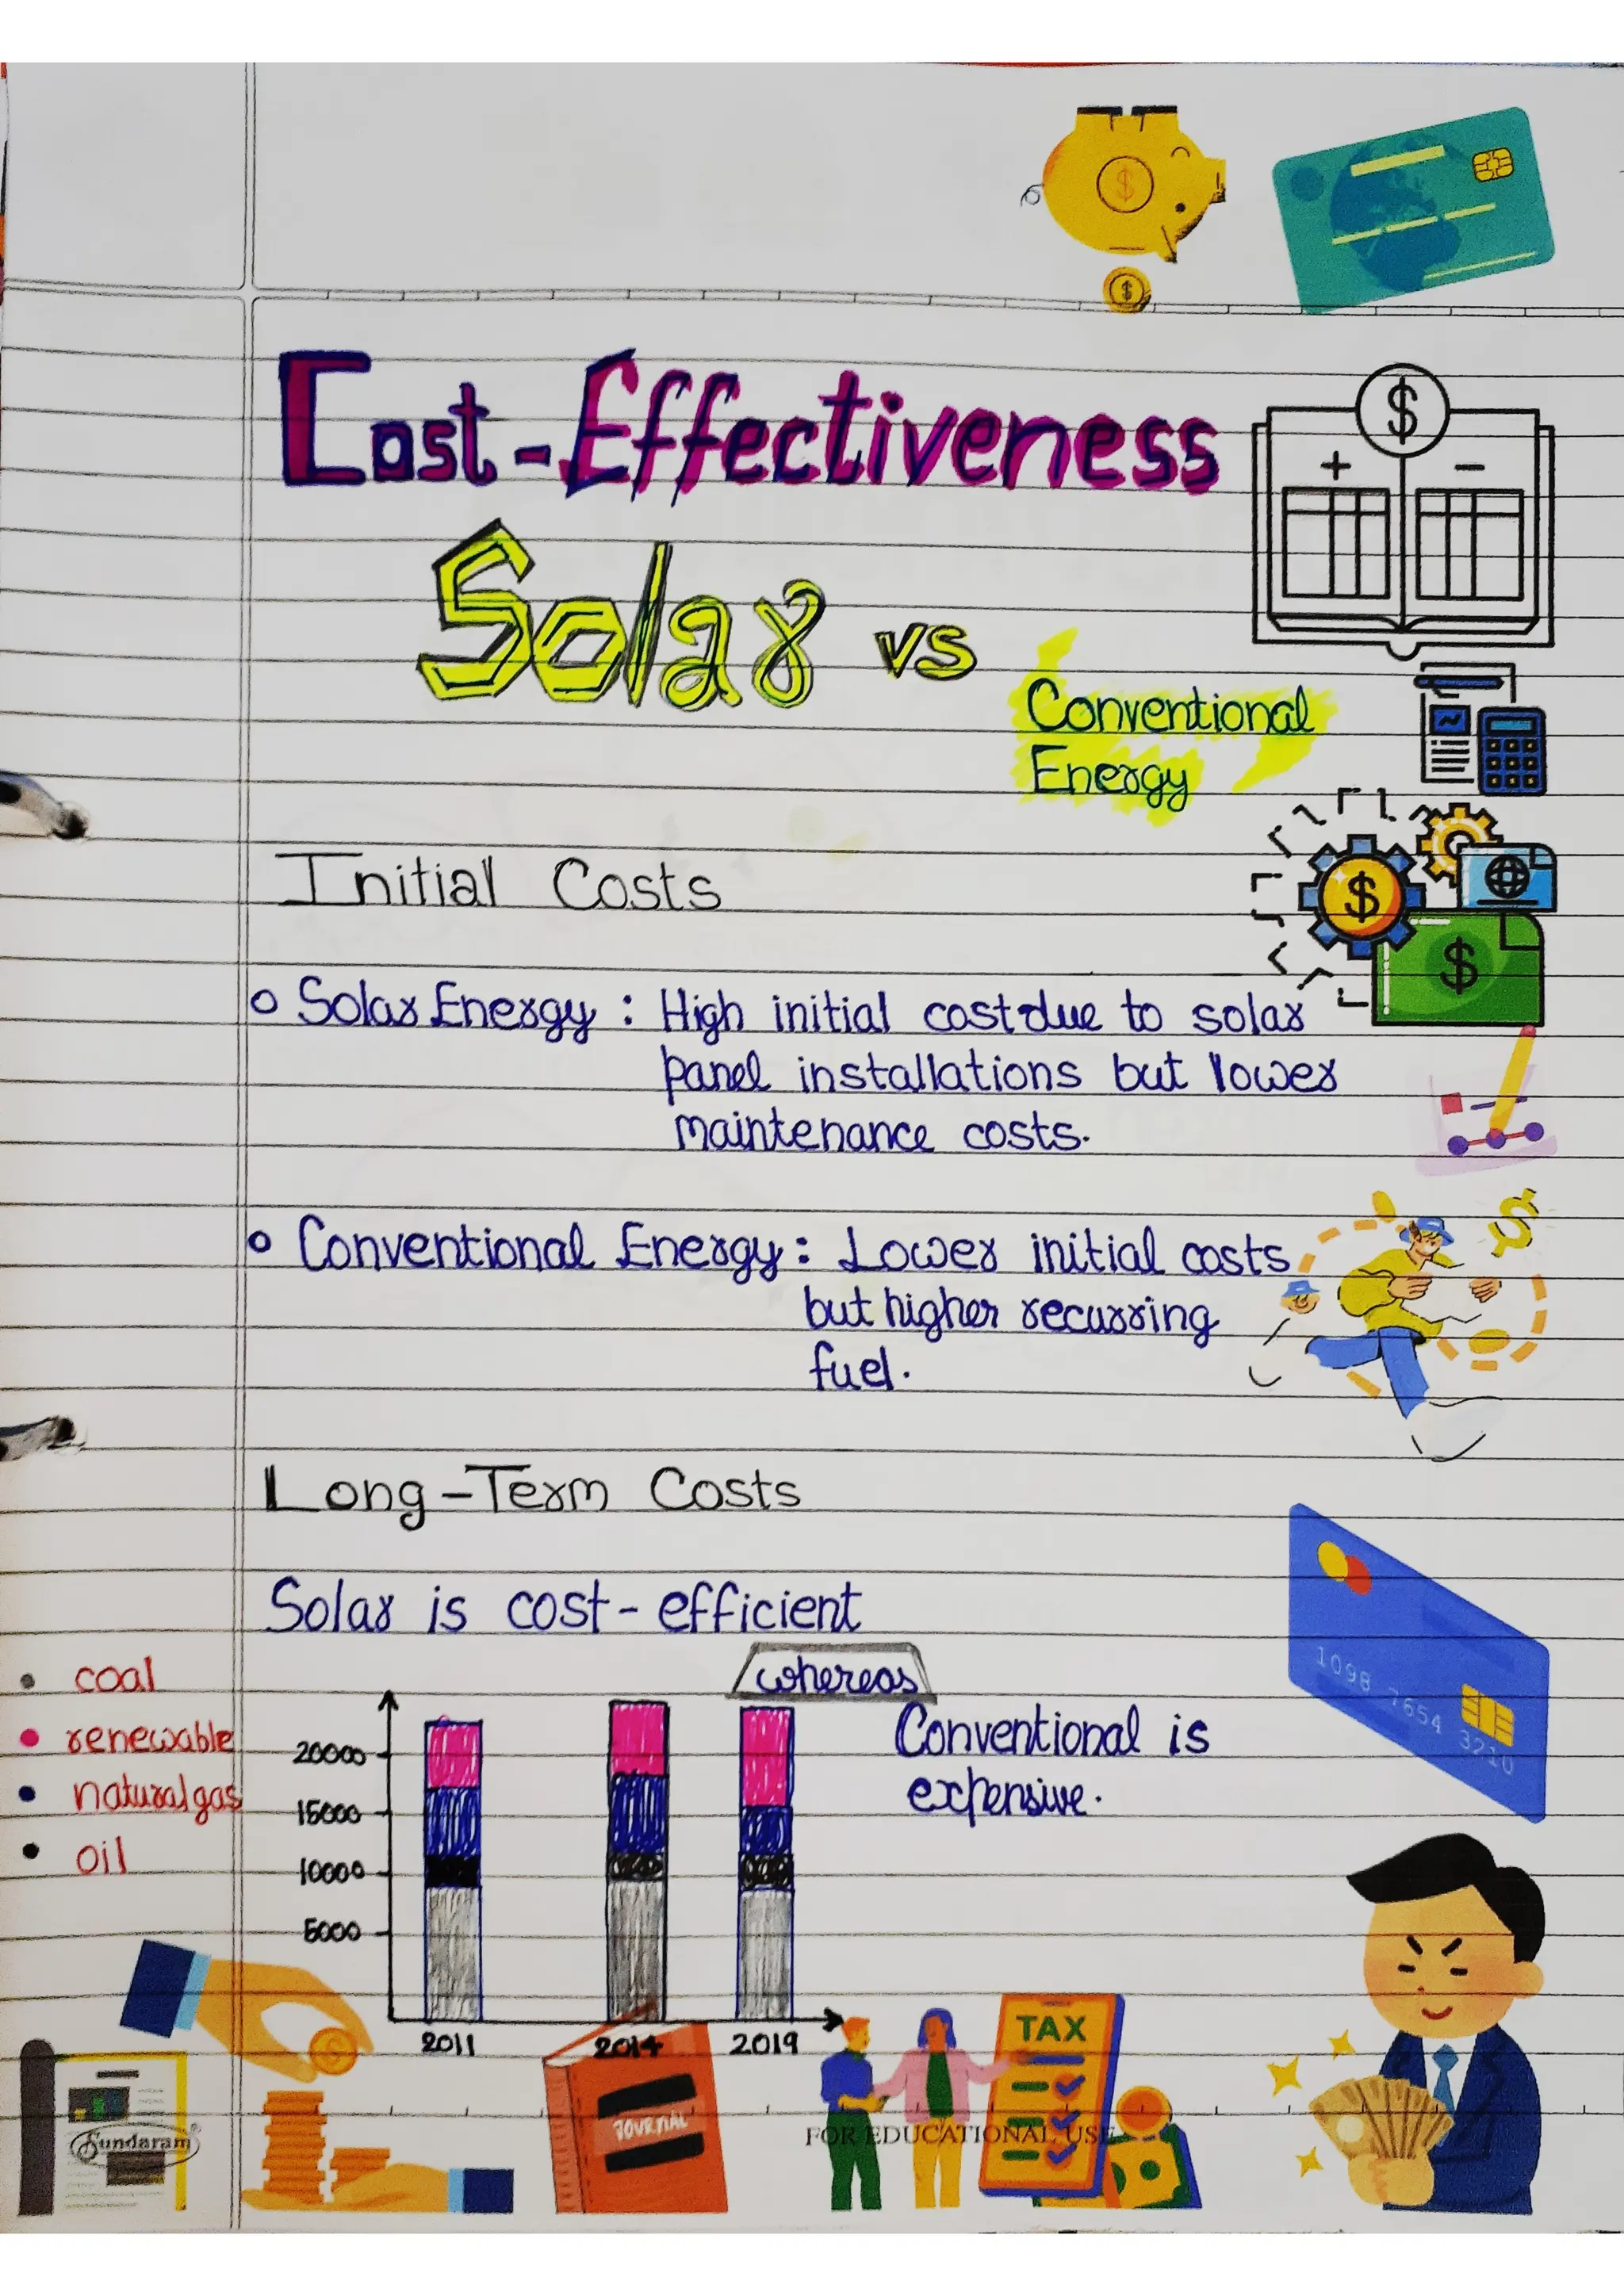 Cost-Effectiveness
Solar vs
Conventional
Energy
Initial Costs
Solar Energy: High initial cost due to solar
panel installations but lower
maintenance costs.
Conventional Energy: Lower initial costs
but higher recurring
fuel.
Long-Term Costs
Solar is cost-efficient
whereas
Conventional is
expensive.
coal
renewable
natural gas
oil
20000
15000
10000
5000
2011 2014 2019
1098 7654 3210
TAX
JOURNAL
Sundaram
FOR EDUCATIONAL USE